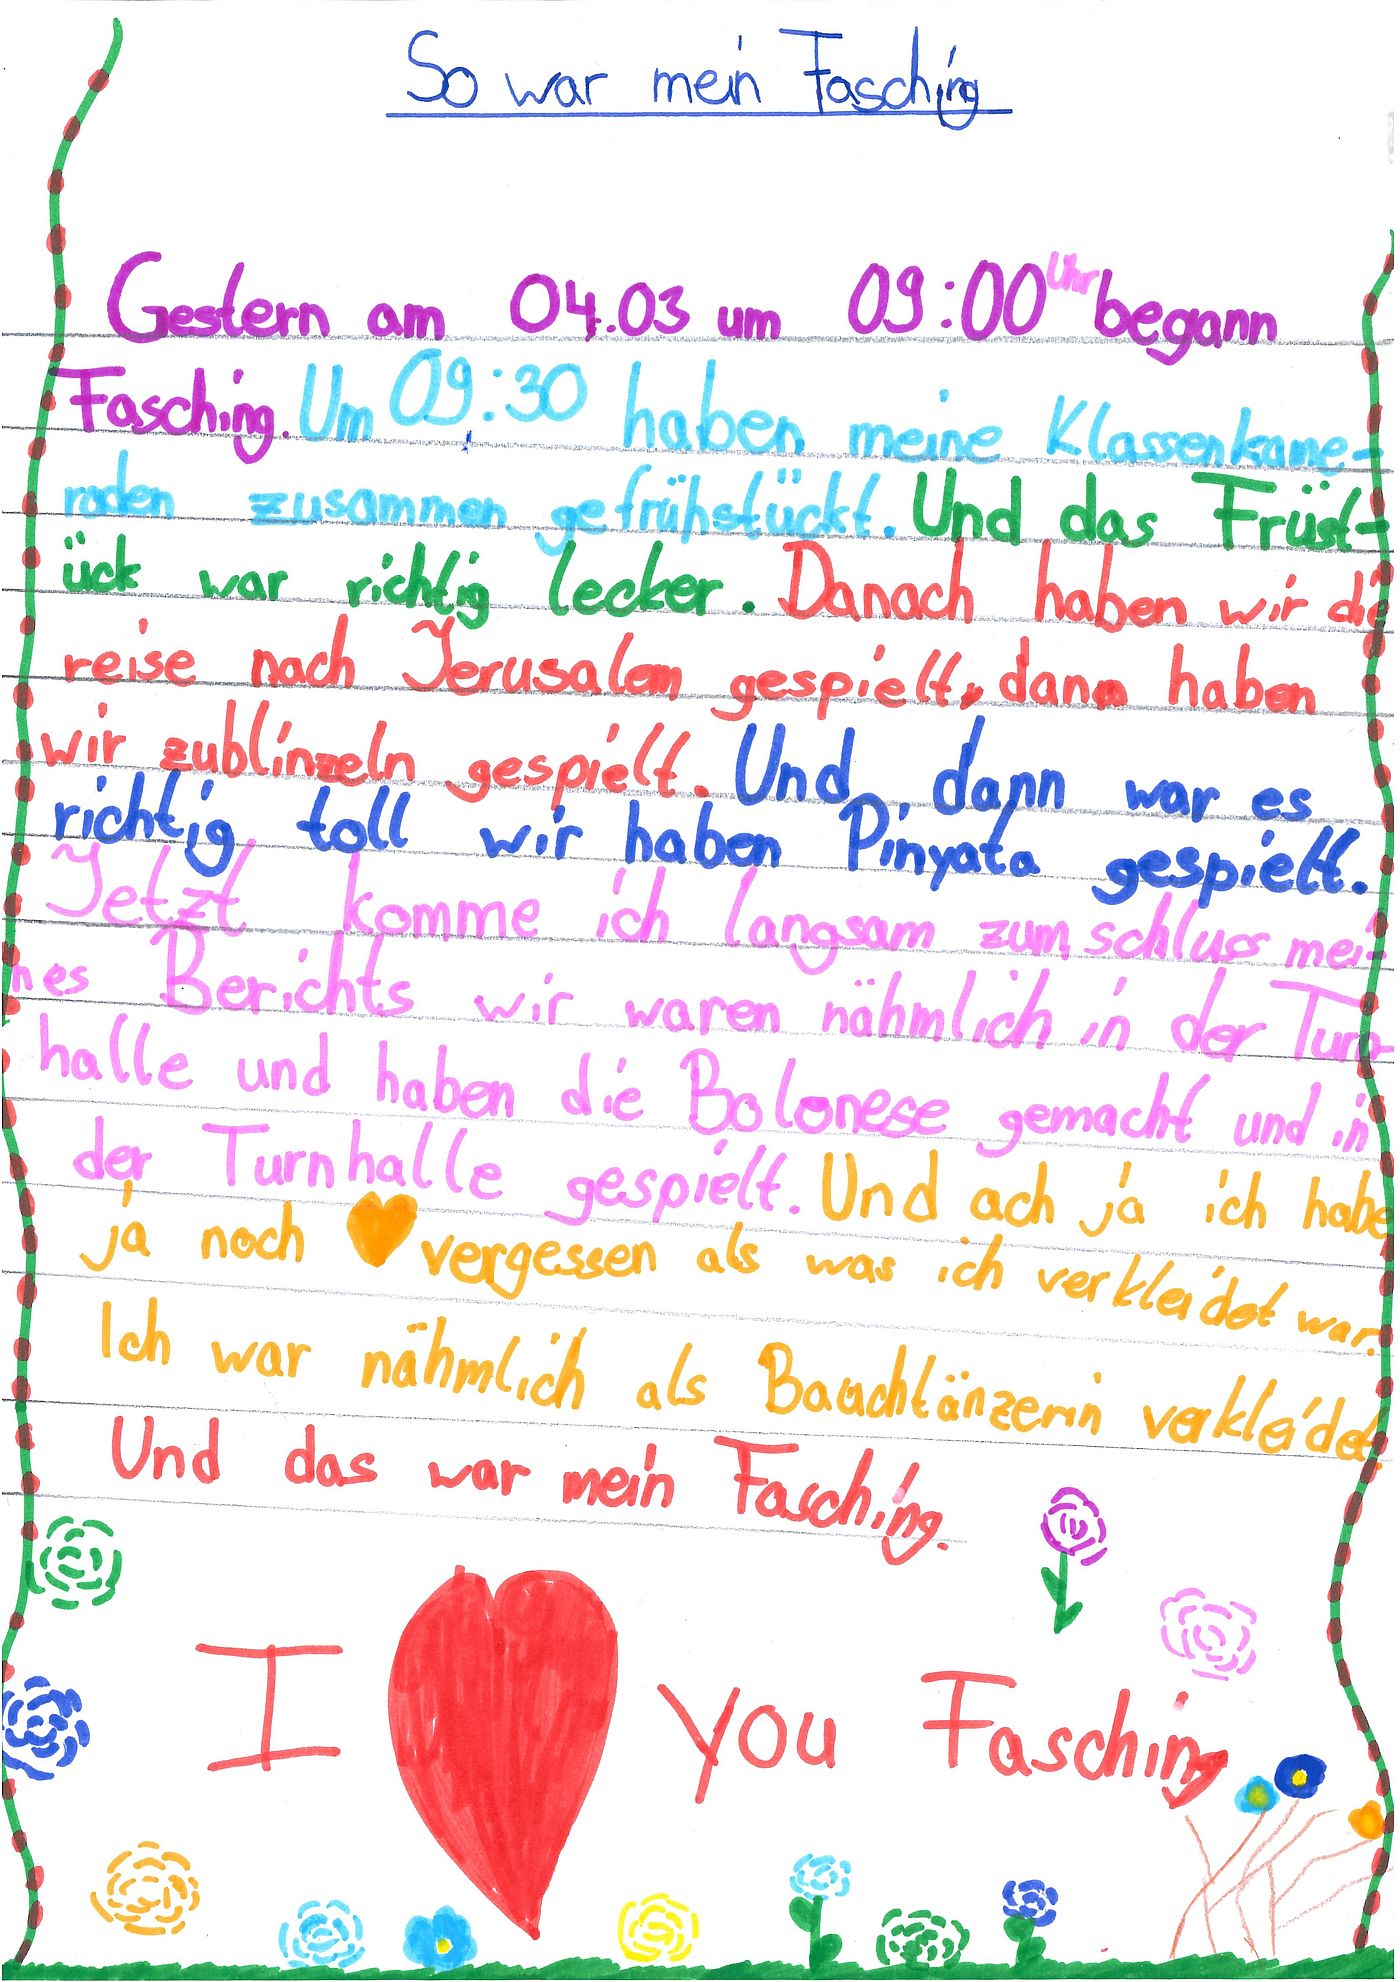 So war mein Fasching
Gestern am 04.03 um 09:00 Uhr begann
Fasching. Um 09:30 haben meine Klassenkame-
raden zusammen gefrühstückt. Und das Früst-
ück war richtig lecker. Danach haben wir die
reise nach Jerusalem gespielt, dann haben
wir zublinzeln gespielt. Und, dann war es
richtig toll wir haben Pinyata gespielt.
Jetzt komme ich langsam zum schluss mei-
nes Berichts wir waren nähmlich in der Turn-
halle und haben die Bolonese gemacht und in
der Turnhalle gespielt. Und ach ja ich habe
ja noch vergessen als was ich verkleidet war.
Ich war nähmlich als Bauchtänzerin verkleidet.
Und das war mein Fasching.
I you Fasching